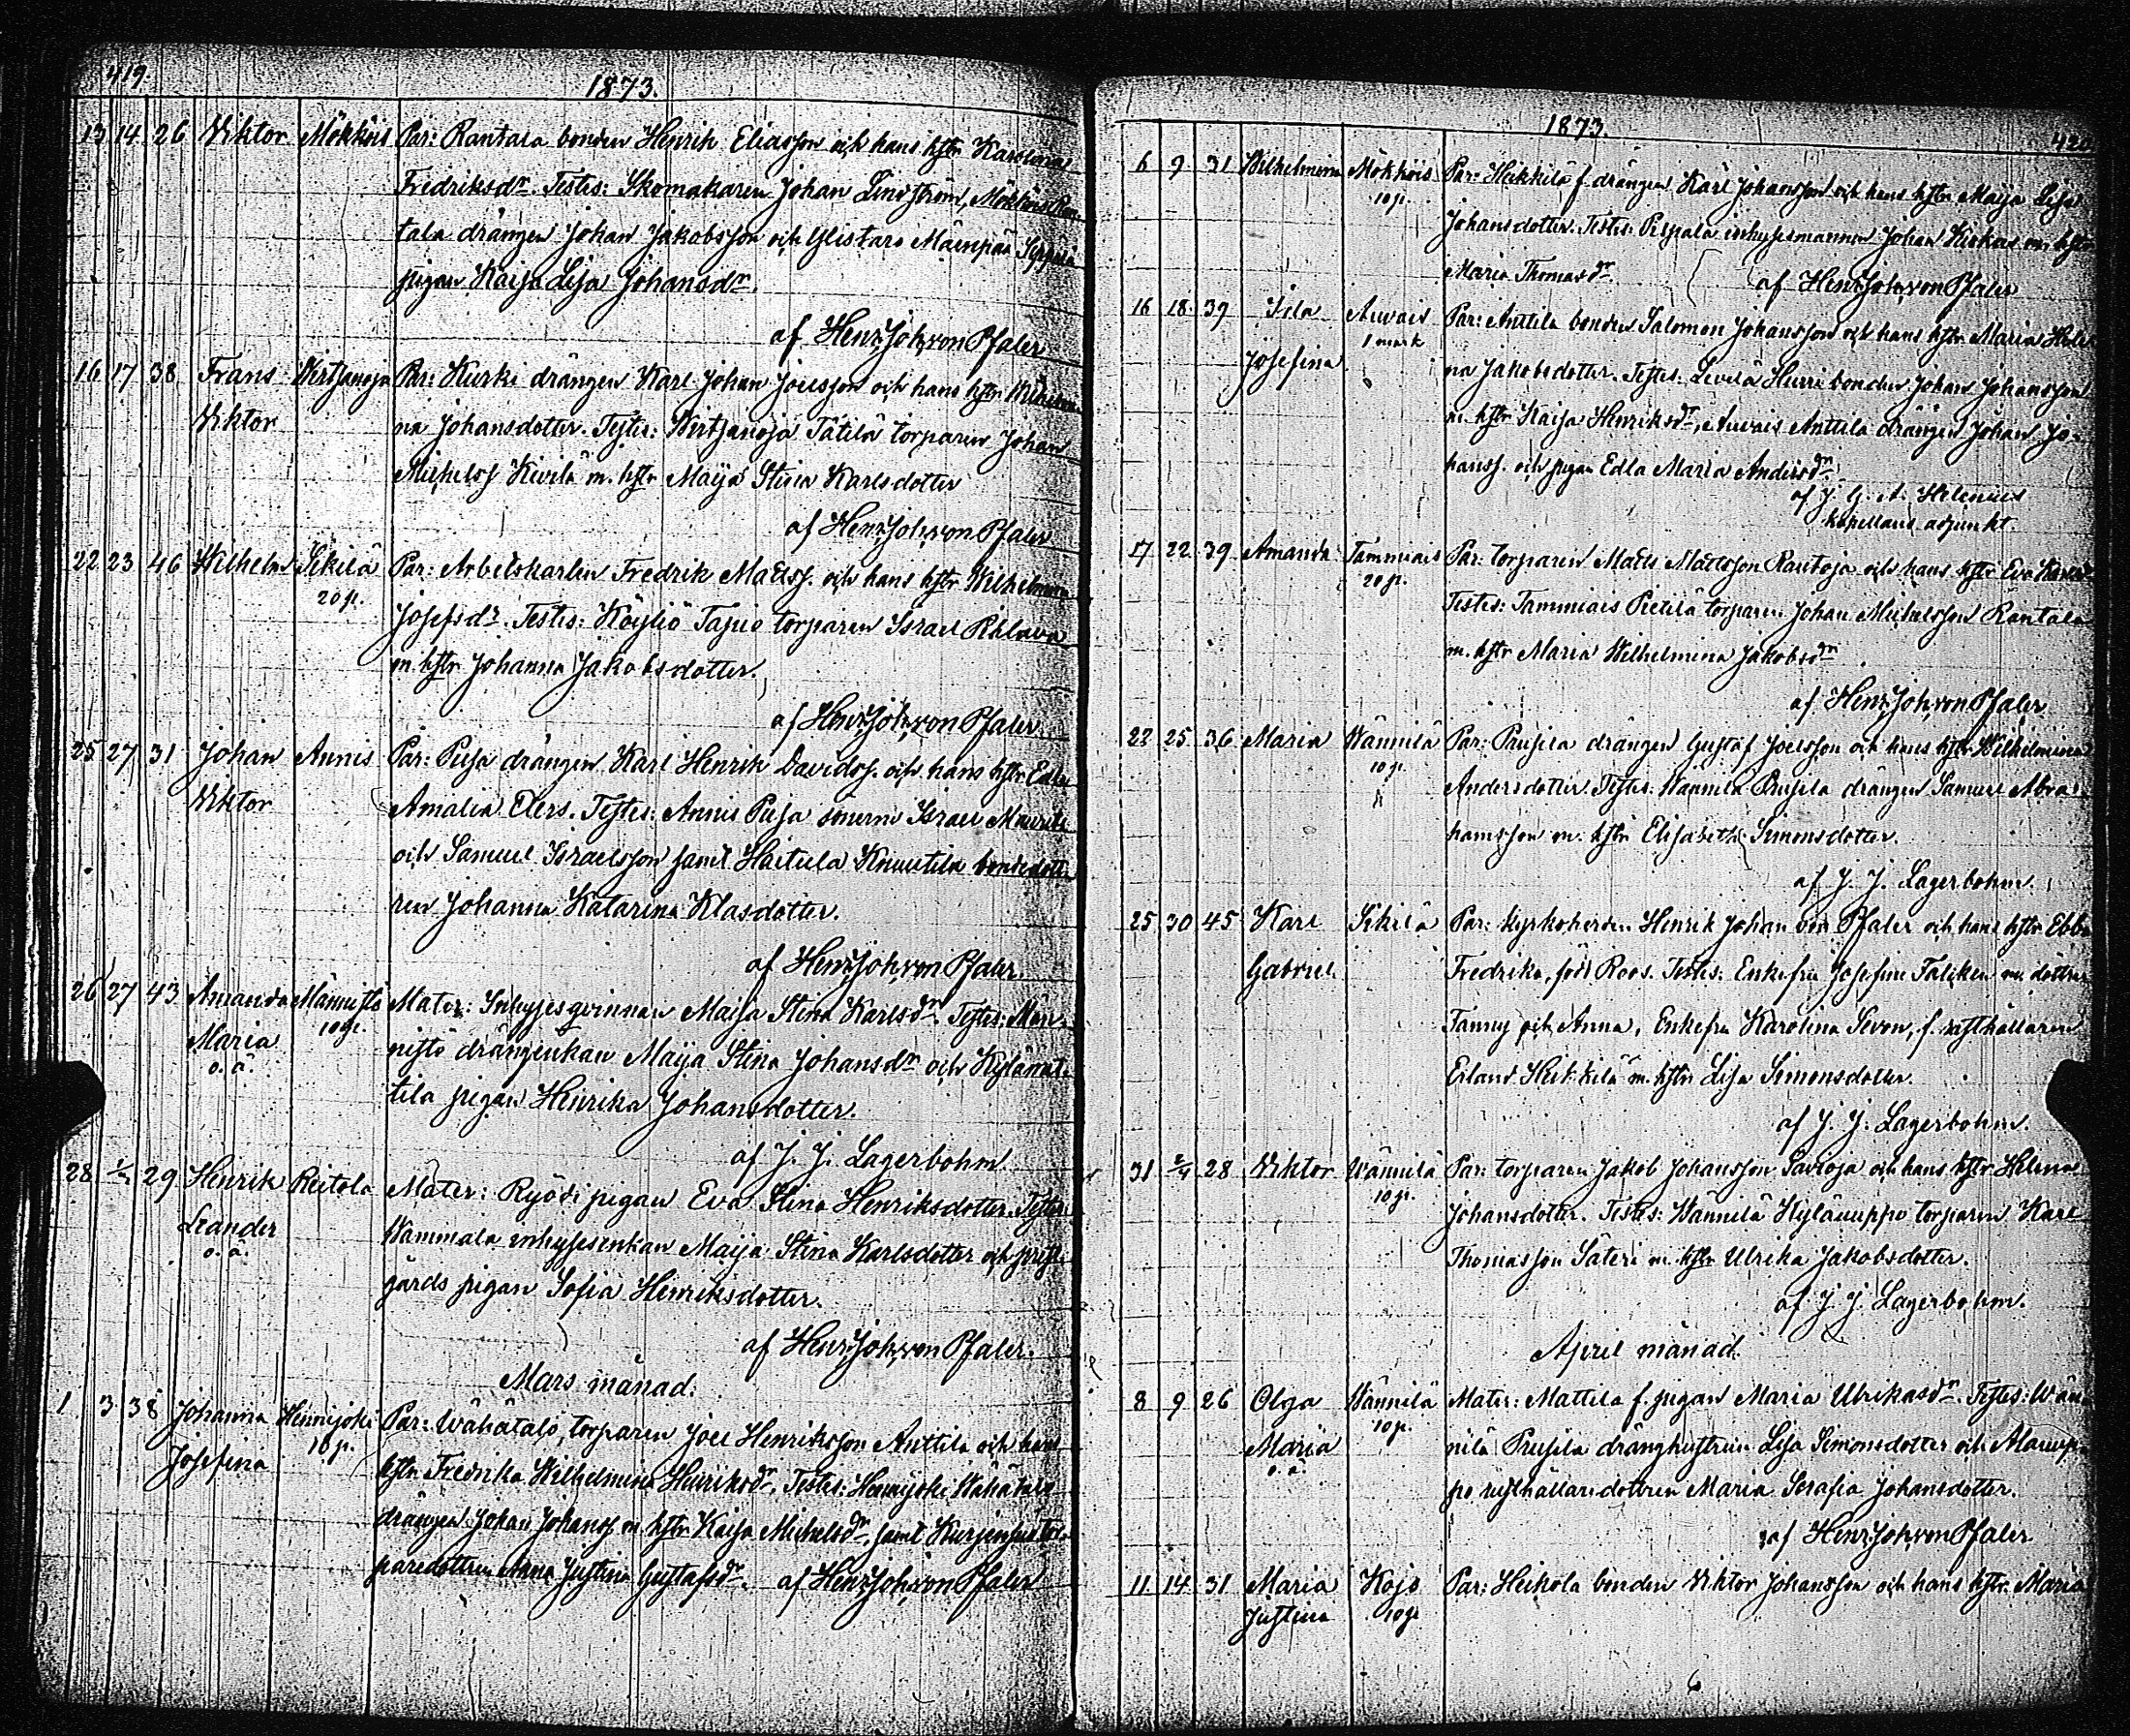 419.
1873.
13 14 26 Viktor Mökköis Par: Rantala bonden Henrik Eliasson och hans hstr Karolina
Fredriksdr. Testes: Skomakaren Johan Lindström, Mökköis Ran-
tala drängen Johan Jakobsson och Ylistaro Mäenpää Seppälä
pigan Kaisa Lisa Johansdr.
af Henr. Joh. von Pfaler
16 17 38 Frans Virtsanoja Par: Kurki drängen Karl Johan Joelsson och hans hstr Wilhelmi-
Viktor na Johansdotter. Testes: Virtsanoja Tätilä torparen Johan
Michelss Kivilä m. hstr Maija Stina Karlsdotter
af Henr. Joh. von Pfaler
22 23 46 Wilhelm Sikilä Par: Arbetskarlen Fredrik Mattss. och hans hstr Wilhelmina
20 p. Josefsdr. Testes: Köyliö Tapio torparen Israel Pihlava
m hstr Johanna Jakobsdotter.
af Henr. Joh. von Pfaler
25 27 31 Johan Annis Par: Pelsa drängen Karl Henrik Davidss. och hans hstr Edla
Viktor Amalia Elers. Testes: Annis Pelsa sönerne Israel Maurits
och Samuel Israelsson samt Haitula Knuutila bondedott-
ren Johanna Katarina Klasdotter.
af Henr. Joh. von Pfaler.
26 27 43 Amanda Männistö Mater: Inhysesqvinnan Maija Stina Karlsdr. Testes: Män-
10 p.
Maria nistö drängenkan Maija Stina Johansdr och Kylämat-
o. ä.
tila pigan Henrika Johansdotter.
af J. J. Lagerbohm
28 1/3 29 Henrik Reitola Mater: Ryödi pigan Eva Stina Henriksdotter. Testes:
Leander Wammala inhysesenkan Maija Stina Karlsdotter och prest-
o. ä.
gårds pigan Sofia Henriksdotter.
af Henr. Joh. von Pfaler.
Mars månad.
1 3 38 Johanna Hennijoki Par: Wähätalo, torparen Joel Henriksson Anttila och hans
10 p.
Josefina hstr Fredrika Wilhelmina Henriksdr. Testes: Hennijoki Wähätalo
drängen Johan Johanss m. hstr Kaisa Michelsdr, samt Kurjensuu tor-
paredottren Anna Justina Gustafsdr. af Henr. Joh. von Pfaler
1873.
420
6 9 31 Wilhelmina Mökköis Par: Heikkilä f. drängen Karl Johansson och hans hstr Maija Lisa
10 p. Johansdotter. Testes: Pispala inhysesmannen Johan Kiskas m. hstr
Maria Thomasdr. af Henr. Joh. von Pfaler
16 18 39 Ida Auvais Par: Anttila bonden Salomon Johansson och hans hstr Maria Hele-
1 mark
Josefina na Jakobsdotter. Testes: Levelä Hurri bonden Johan Johansson
m. hstr Kaisa Henriksdr, Auvais Anttila drängen Johan Jo-
hanss. och pigan Edla Maria Andersdr.
af J. G. A. Helenius
kapellans adjunkt
17 22 39 Amanda Tammiais Par: torparen Matts Mattsson Rautoja och hans hstr Eva Karlsdr
20 p. Testes: Tammiais Pietilä torparen Johan Michelsson Rantala
m. hstr Maria Wilhelmina Jakobsdr
af Henr. Joh. von Pfaler
22 25 36 Maria Wännilä Par: Prusila drängen Gustaf Joelsson och hans hstr Wilhelmina
10 p. Andersdotter. Testes: Wännilä Prusila drängen Samuel Abra-
hamsson m. hstr Elisabeth Simonsdotter.
af J. J. Lagerbohm.
25 30 45 Karl Sikilä Par: kyrkoherden Henrik Johan von Pfaler och hans hstr Ebba
Gabriel Fredrika, född Roos. Testes: Enkefru Josefine Talcken m. döttrar
Fanny och Anna, Enkefru Karolina Sevon, f. rusthållaren
Erland Heikkilä m. hstr Lisa Simonsdotter.
af J. J. Lagerbohm.
31 2/4 28 Viktor Wännilä Par: torparen Jakob Johansson Savioja och hans hstr Helena
10 p. Johansdotter. Testes: Wännilä Kyläuuppo torparen Karl
Thomasson Säteri m. hstr Ulrika Jakobsdotter.
af J. J. Lagerbohm.
April månad.
8 9 26 Olga Wännilä Mater: Mattila f. pigan Maria Ulrikasdr. Testes: Wän-
10 p.
Maria nilä Prusila dränghustrun Lisa Simonsdotter och Mauup-
o. ä.
po rusthållaredottren Maria Serafia Johansdotter.
af Henr. Joh. von Pfaler
11 14 31 Maria Kojo Par: Heikola bonden Viktor Johansson och hans hstr Maria
Justina 10 p.